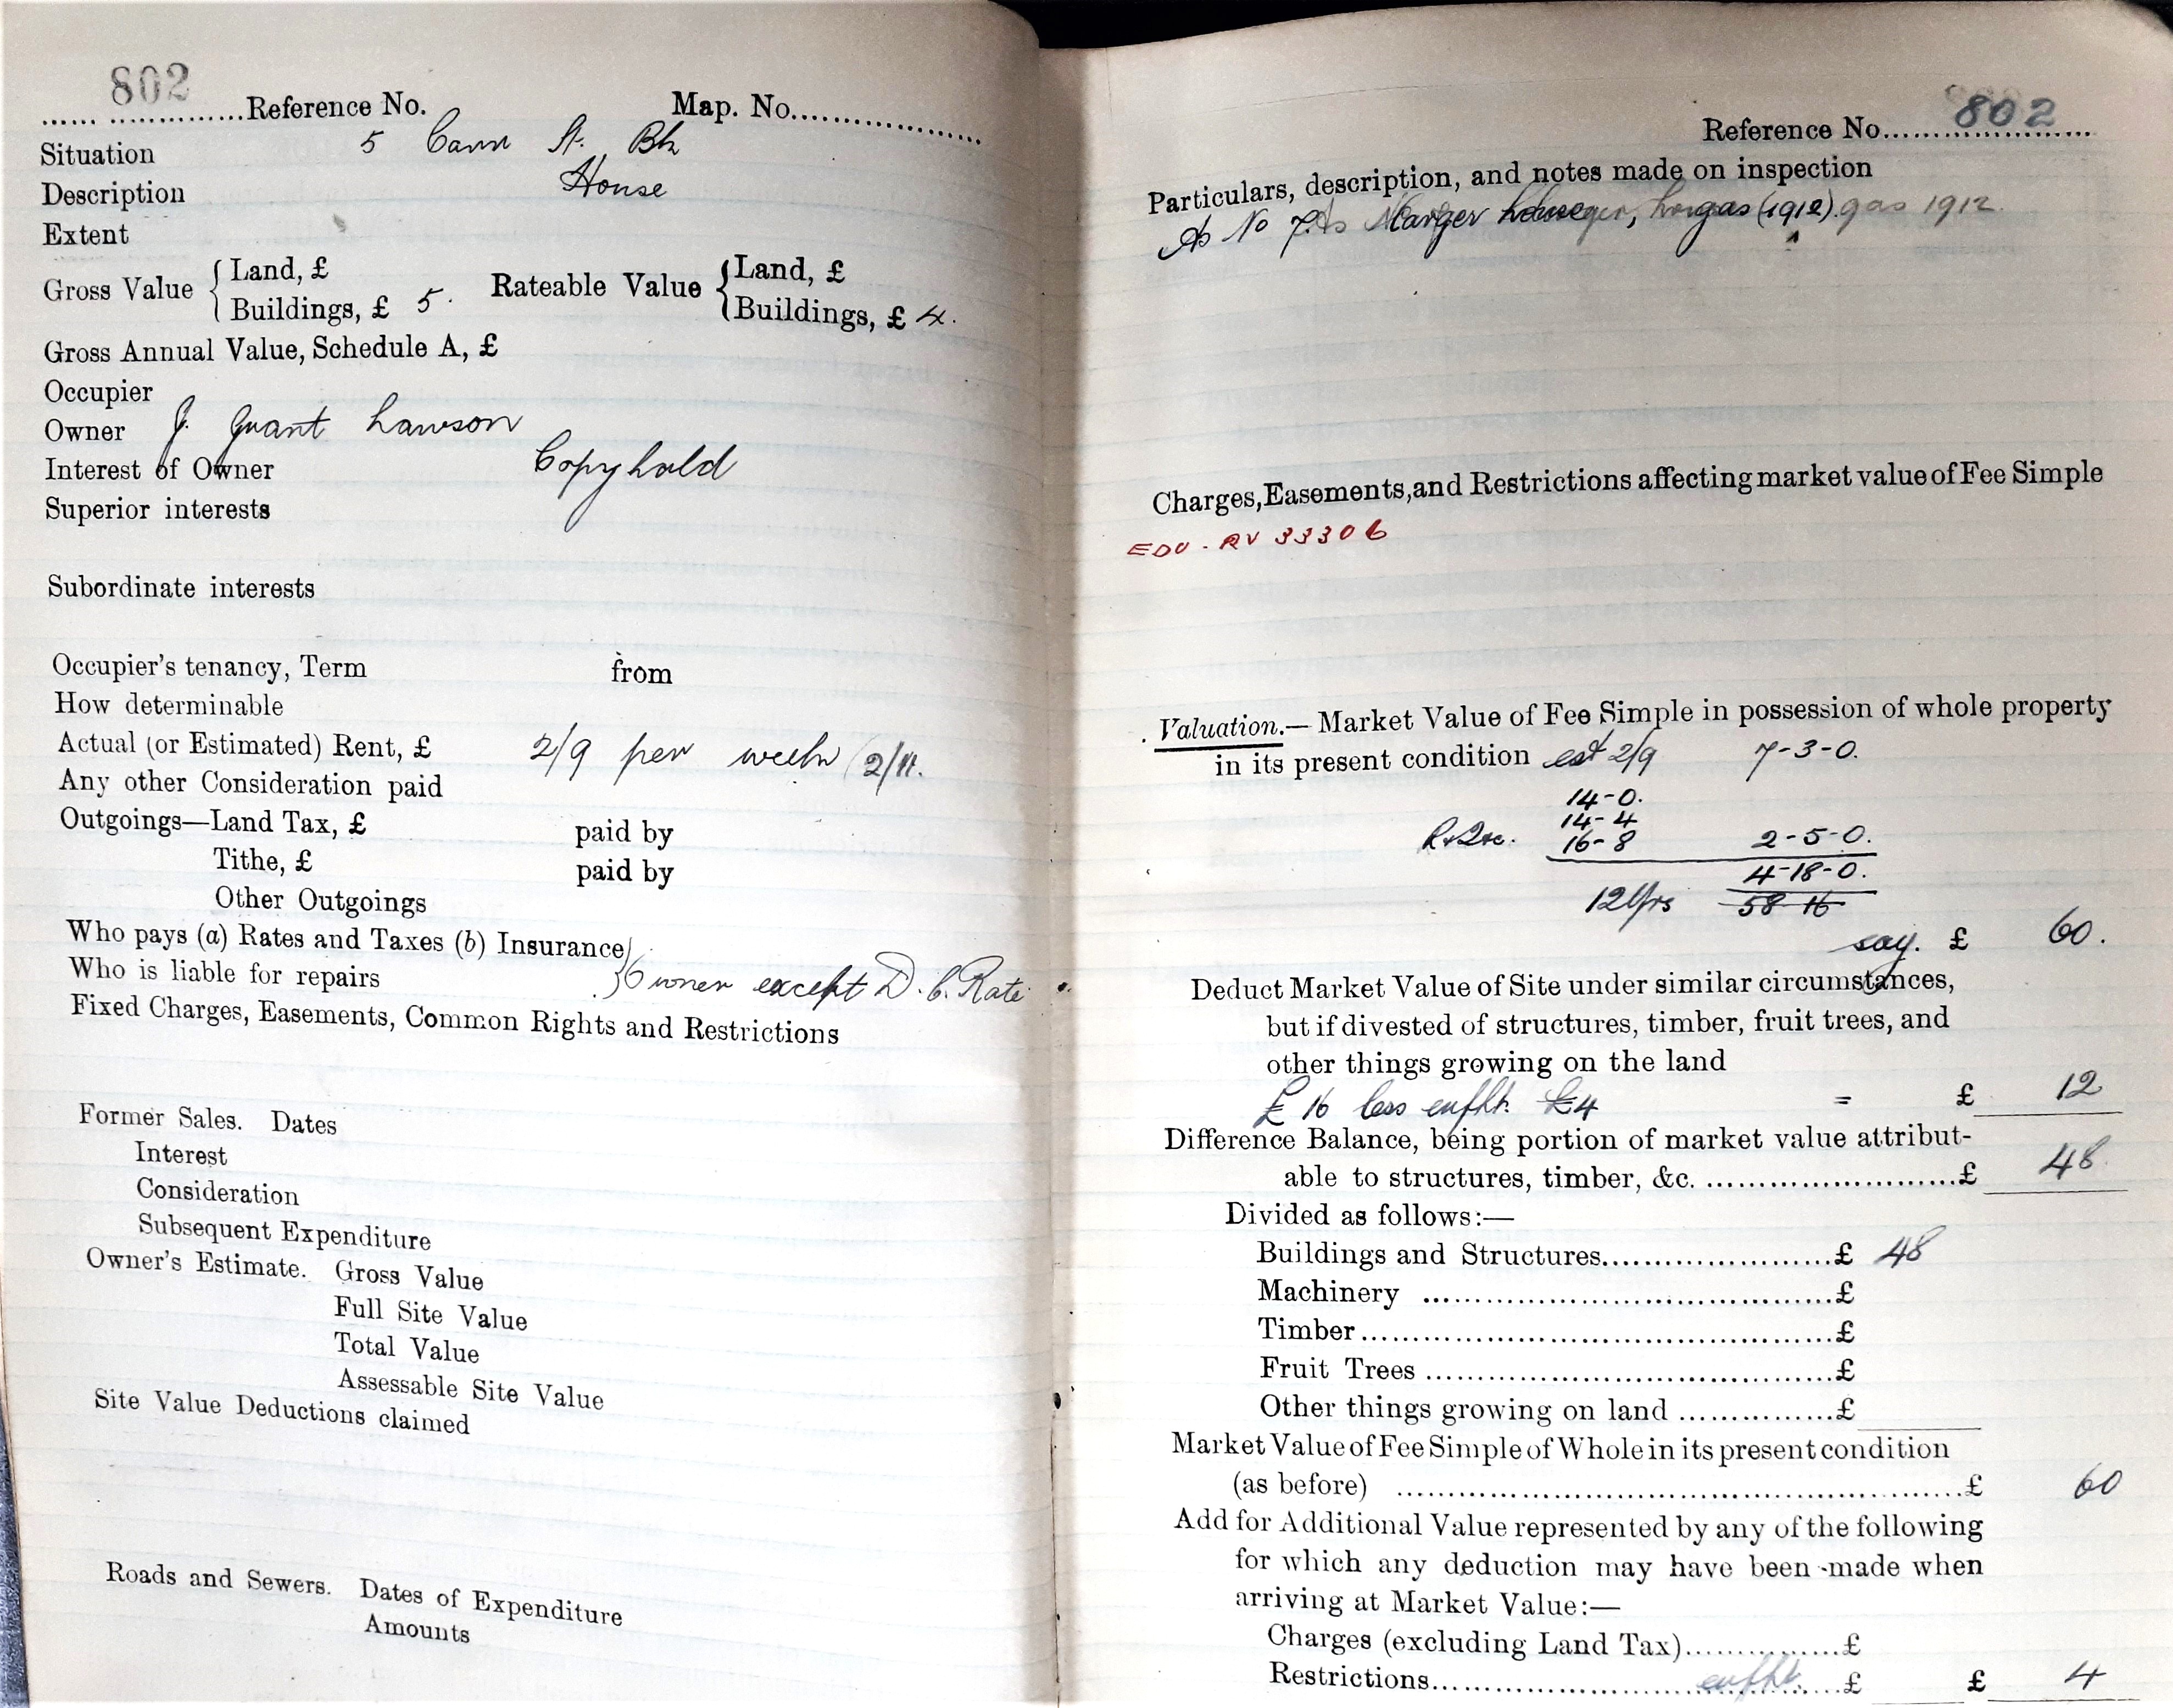 802
...... .............Reference No. Map. No..................
Situation 5 Carr St. Bk
Description House
Extent
Gross Value { Land, £ Rateable Value { Land, £
Buildings, £ 5. Buildings, £ 4.
Gross Annual Value, Schedule A, £
Occupier
Owner J. Grant Lawson
Interest of Owner Copyhold
Superior interests
Subordinate interests
Occupier's tenancy, Term from
How determinable
Actual (or Estimated) Rent, £ 2/9 per week (2/11.
Any other Consideration paid
Outgoings—Land Tax, £ paid by
Tithe, £ paid by
Other Outgoings
Who pays (a) Rates and Taxes (b) Insurance }
Who is liable for repairs } Owner except D.C. Rate
Fixed Charges, Easements, Common Rights and Restrictions
Former Sales. Dates
Interest
Consideration
Subsequent Expenditure
Owner's Estimate. Gross Value
Full Site Value
Total Value
Assessable Site Value
Site Value Deductions claimed
Roads and Sewers. Dates of Expenditure
Amounts
Reference No. 802
Particulars, description, and notes made on inspection
As No 7. larger house, gas (1912). gas 1912
Charges, Easements, and Restrictions affecting market value of Fee Simple
EDU - RV 33306
Valuation.— Market Value of Fee Simple in possession of whole property
in its present condition est 2/9 7-3-0.
14-0.
14-4
16-8 2-5-0.
4-18-0.
12 Yrs 58-16
say. £ 60.
Deduct Market Value of Site under similar circumstances,
but if divested of structures, timber, fruit trees, and
other things growing on the land
£16 less enfht. £4 = £ 12
Difference Balance, being portion of market value attribut-
able to structures, timber, &c. ........................£ 48.
Divided as follows:—
Buildings and Structures......................£ 48
Machinery .......................................£
Timber.............................................£
Fruit Trees .......................................£
Other things growing on land ...............£
Market Value of Fee Simple of Whole in its present condition
(as before) .....................................................£ 60
Add for Additional Value represented by any of the following
for which any deduction may have been made when
arriving at Market Value:—
Charges (excluding Land Tax)...............£
Restrictions...............enfht.......£ £ 4